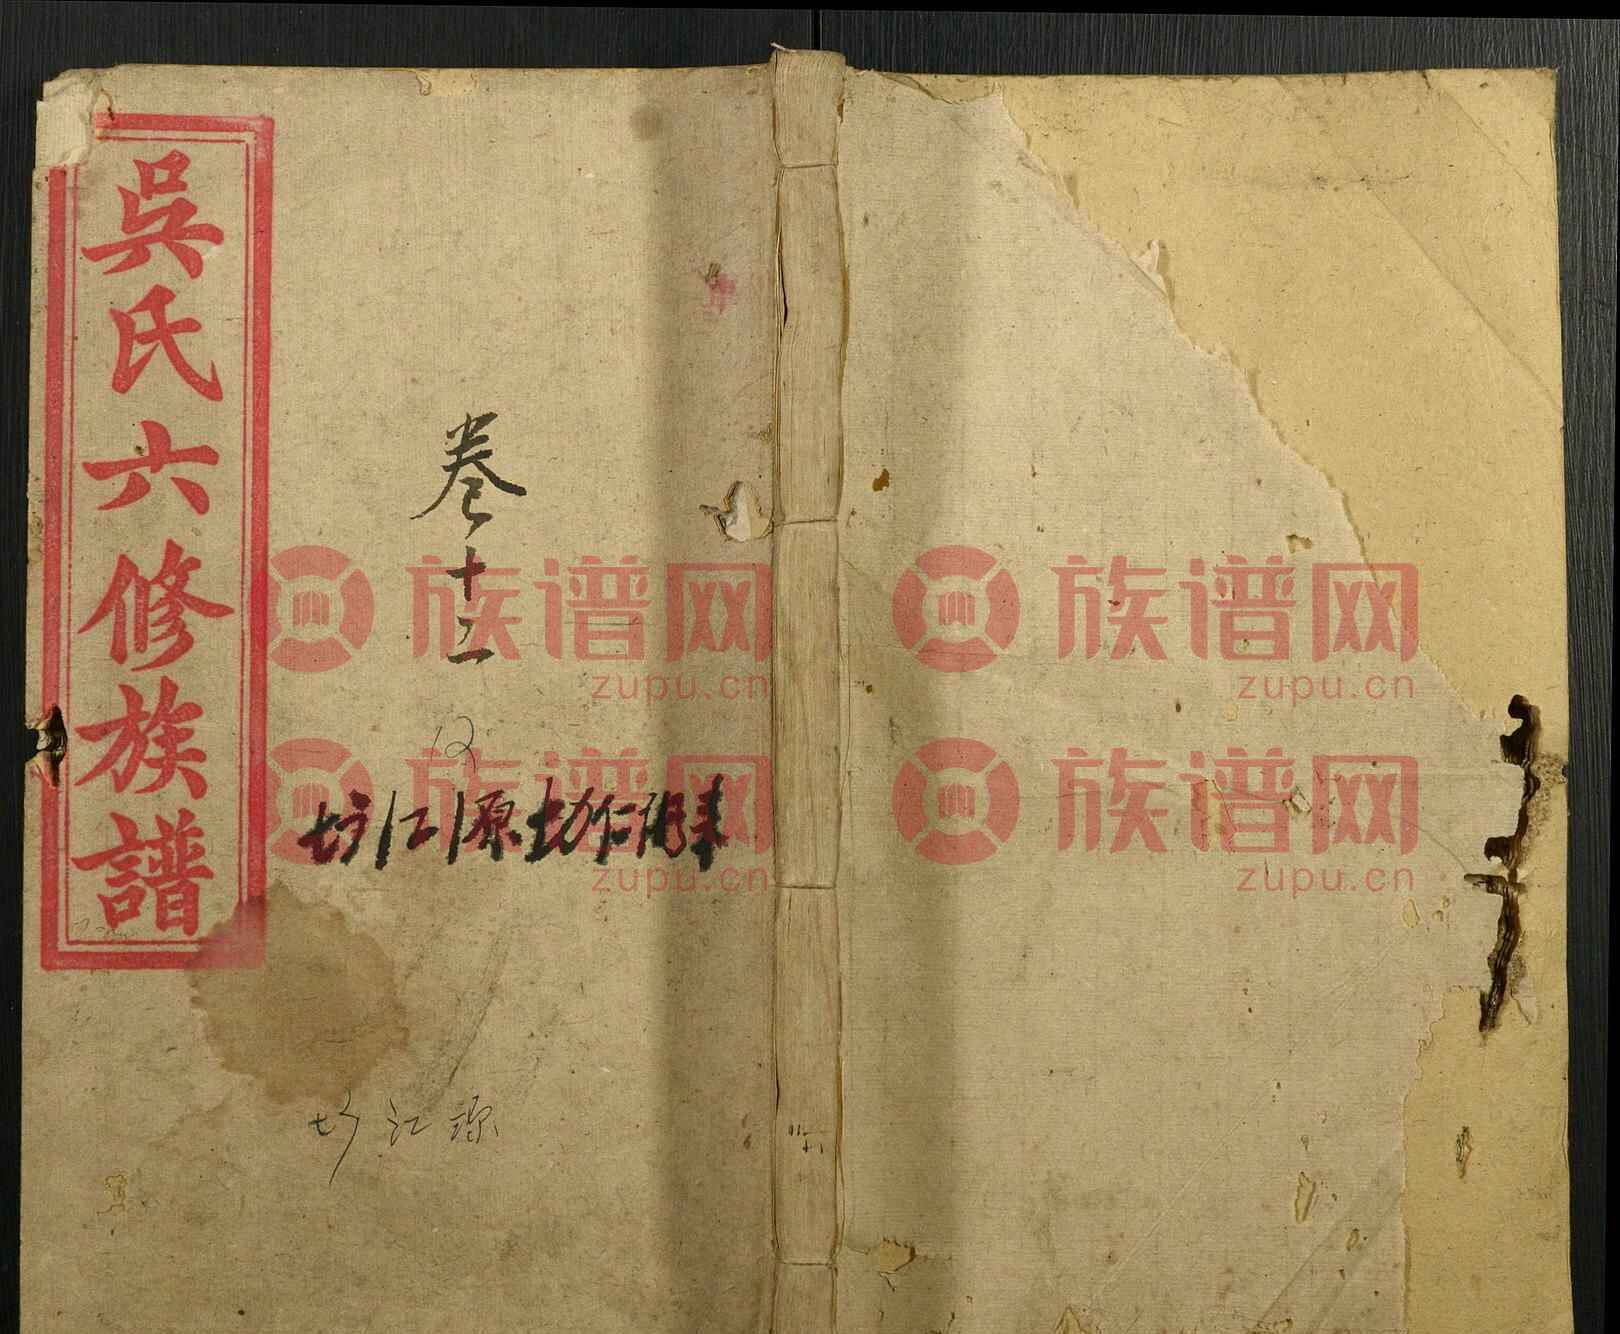 吳氏六修族譜
卷十二
12
坊江源
族谱网
zupu.cn
族谱网
zupu.cn
族谱网
zupu.cn
族谱网
zupu.cn